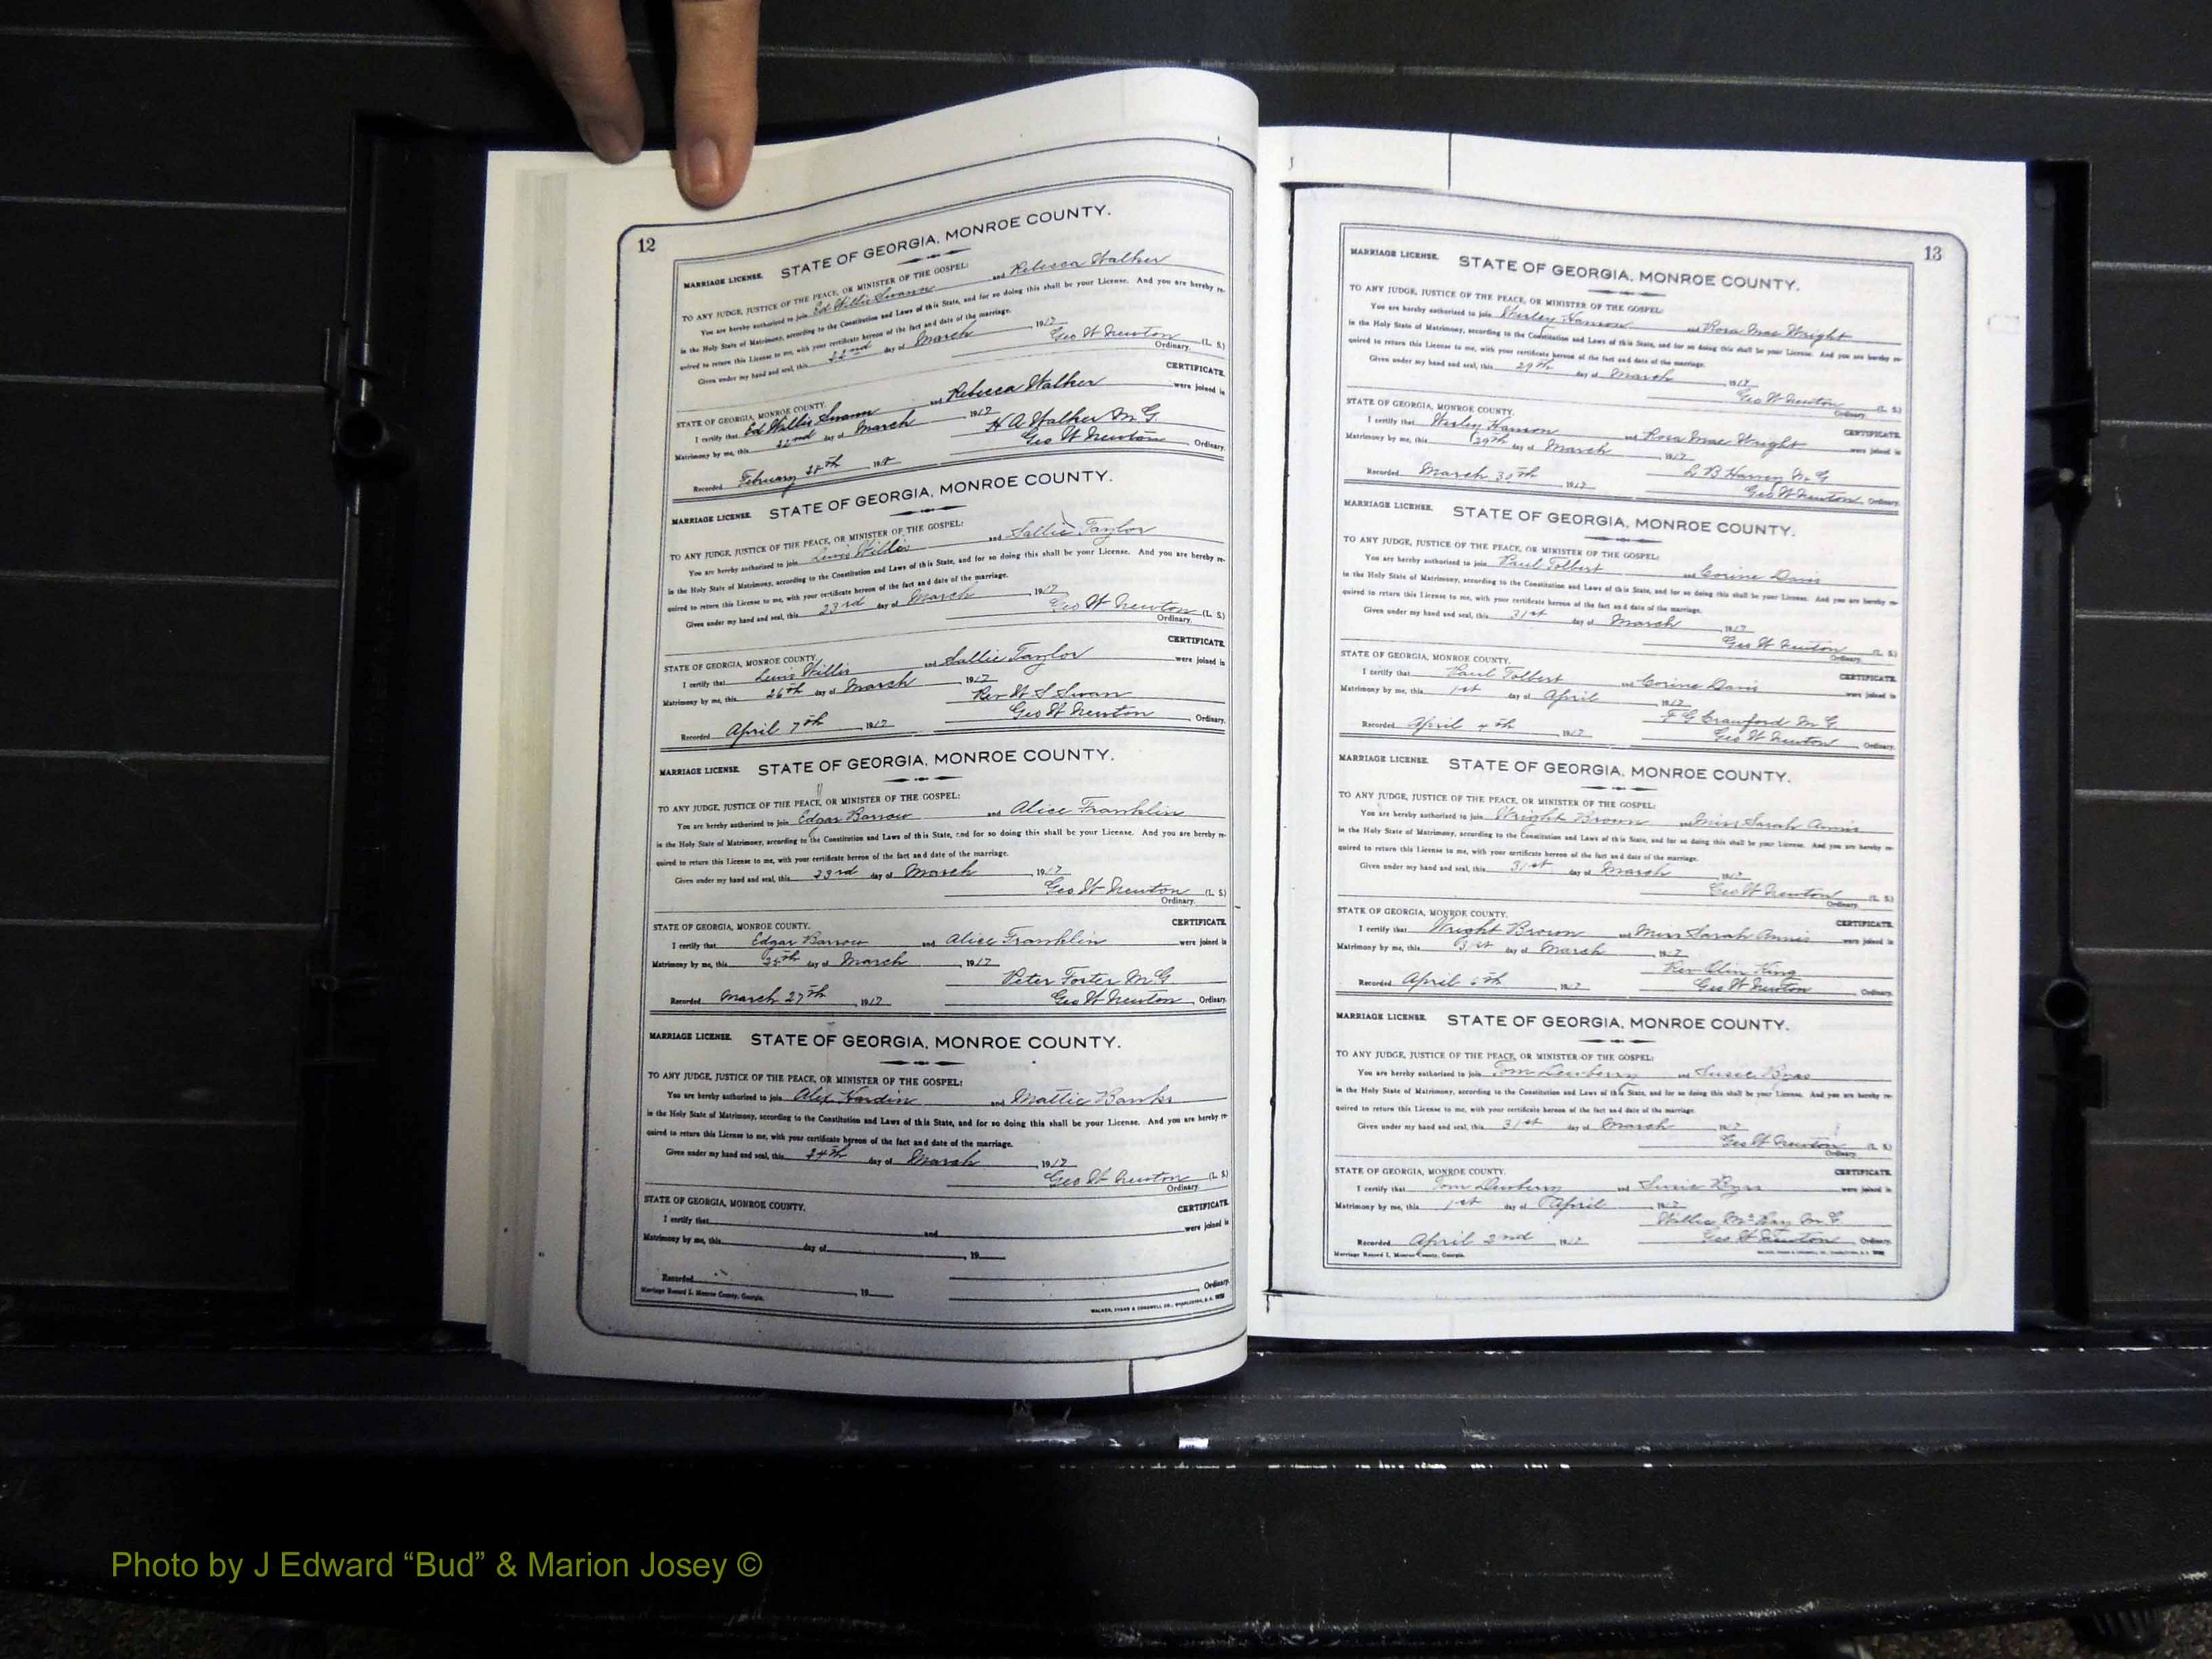 12
MARRIAGE LICENSE. STATE OF GEORGIA, MONROE COUNTY.
TO ANY JUDGE, JUSTICE OF THE PEACE, OR MINISTER OF THE GOSPEL:
You are hereby authorized to join Ed Willis Swann and Rebecca Walker
in the Holy State of Matrimony, according to the Constitution and Laws of this State, and for so doing this shall be your License. And you are hereby re-
quired to return this License to me, with your certificate hereon of the fact and date of the marriage.
Given under my hand and seal, this 22nd day of March 1917
Geo W Newton (L. S.)
Ordinary.
STATE OF GEORGIA, MONROE COUNTY. CERTIFICATE.
I certify that Ed Willis Swann and Rebecca Walker were joined in
Matrimony by me, this 22nd day of March 1917
H A Walker M.G.
Recorded February 28th 1918 Geo W Newton, Ordinary.
MARRIAGE LICENSE. STATE OF GEORGIA, MONROE COUNTY.
TO ANY JUDGE, JUSTICE OF THE PEACE, OR MINISTER OF THE GOSPEL:
You are hereby authorized to join Lewis Willis and Sallie Taylor
in the Holy State of Matrimony, according to the Constitution and Laws of this State, and for so doing this shall be your License. And you are hereby re-
quired to return this License to me, with your certificate hereon of the fact and date of the marriage.
Given under my hand and seal, this 23rd day of March, 1917
Geo W Newton (L. S.)
Ordinary.
STATE OF GEORGIA, MONROE COUNTY. CERTIFICATE.
I certify that Lewis Willis and Sallie Taylor were joined in
Matrimony by me, this 26th day of March, 1917
Rev W S Swan
Recorded April 7th, 1917 Geo W Newton, Ordinary.
MARRIAGE LICENSE. STATE OF GEORGIA, MONROE COUNTY.
TO ANY JUDGE, JUSTICE OF THE PEACE, OR MINISTER OF THE GOSPEL:
You are hereby authorized to join Edgar Barrow and Alice Franklin
in the Holy State of Matrimony, according to the Constitution and Laws of this State, and for so doing this shall be your License. And you are hereby re-
quired to return this License to me, with your certificate hereon of the fact and date of the marriage.
Given under my hand and seal, this 23rd day of March, 1917
Geo W Newton (L. S.)
Ordinary.
STATE OF GEORGIA, MONROE COUNTY. CERTIFICATE.
I certify that Edgar Barrow and Alice Franklin were joined in
Matrimony by me, this day of March, 1917
Peter Foster M.G.
Recorded March 27th, 1917 Geo W Newton, Ordinary.
MARRIAGE LICENSE. STATE OF GEORGIA, MONROE COUNTY.
TO ANY JUDGE, JUSTICE OF THE PEACE, OR MINISTER OF THE GOSPEL:
You are hereby authorized to join Alex Hardin and Mattie Banks
in the Holy State of Matrimony, according to the Constitution and Laws of this State, and for so doing this shall be your License. And you are hereby re-
quired to return this License to me, with your certificate hereon of the fact and date of the marriage.
Given under my hand and seal, this 24th day of March, 1917
Geo W Newton (L. S.)
Ordinary.
STATE OF GEORGIA, MONROE COUNTY. CERTIFICATE.
I certify that and were joined in
Matrimony by me, this day of, 19
Recorded, 19 Ordinary.
Marriage Record I, Monroe County, Georgia. WALKER, EVANS & COGSWELL CO., CHARLESTON, S. C.
13
MARRIAGE LICENSE. STATE OF GEORGIA, MONROE COUNTY.
TO ANY JUDGE, JUSTICE OF THE PEACE, OR MINISTER OF THE GOSPEL:
You are hereby authorized to join Wesley Hanson and Rosa Mae Wright
in the Holy State of Matrimony, according to the Constitution and Laws of this State, and for so doing this shall be your License. And you are hereby re-
quired to return this License to me, with your certificate hereon of the fact and date of the marriage.
Given under my hand and seal, this 29th day of March, 1917
Geo W Newton (L. S.)
Ordinary.
STATE OF GEORGIA, MONROE COUNTY. CERTIFICATE.
I certify that Wesley Hanson and Rosa Mae Wright were joined in
Matrimony by me, this 29th day of March, 1917
L B Harvey M G
Recorded March 30th, 1917 Geo W Newton, Ordinary.
MARRIAGE LICENSE. STATE OF GEORGIA, MONROE COUNTY.
TO ANY JUDGE, JUSTICE OF THE PEACE, OR MINISTER OF THE GOSPEL:
You are hereby authorized to join Paul Tolbert and Corine Davis
in the Holy State of Matrimony, according to the Constitution and Laws of this State, and for so doing this shall be your License. And you are hereby re-
quired to return this License to me, with your certificate hereon of the fact and date of the marriage.
Given under my hand and seal, this 31st day of March, 1917
Geo W Newton (L. S.)
Ordinary.
STATE OF GEORGIA, MONROE COUNTY. CERTIFICATE.
I certify that Paul Tolbert and Corine Davis were joined in
Matrimony by me, this 1st day of April, 1917
F G Crawford M G
Recorded April 4th, 1917 Geo W Newton, Ordinary.
MARRIAGE LICENSE. STATE OF GEORGIA, MONROE COUNTY.
TO ANY JUDGE, JUSTICE OF THE PEACE, OR MINISTER OF THE GOSPEL:
You are hereby authorized to join Wright Brown and Miss Sarah Annis
in the Holy State of Matrimony, according to the Constitution and Laws of this State, and for so doing this shall be your License. And you are hereby re-
quired to return this License to me, with your certificate hereon of the fact and date of the marriage.
Given under my hand and seal, this 31st day of March, 1917
Geo W Newton (L. S.)
Ordinary.
STATE OF GEORGIA, MONROE COUNTY. CERTIFICATE.
I certify that Wright Brown and Miss Sarah Annis were joined in
Matrimony by me, this 31st day of March, 1917
Rev Olin King
Recorded April 6th, 1917 Geo W Newton, Ordinary.
MARRIAGE LICENSE. STATE OF GEORGIA, MONROE COUNTY.
TO ANY JUDGE, JUSTICE OF THE PEACE, OR MINISTER OF THE GOSPEL:
You are hereby authorized to join Tom Dewberry and Susie Byas
in the Holy State of Matrimony, according to the Constitution and Laws of this State, and for so doing this shall be your License. And you are hereby re-
quired to return this License to me, with your certificate hereon of the fact and date of the marriage.
Given under my hand and seal, this 31st day of March, 1917
Geo W Newton (L. S.)
Ordinary.
STATE OF GEORGIA, MONROE COUNTY. CERTIFICATE.
I certify that Tom Dewberry and Susie Byas were joined in
Matrimony by me, this 1st day of April, 1917
Willis M G
Recorded April 2nd, 1917 Geo W Newton, Ordinary.
Marriage Record I, Monroe County, Georgia.
Photo by J Edward “Bud” & Marion Josey ©